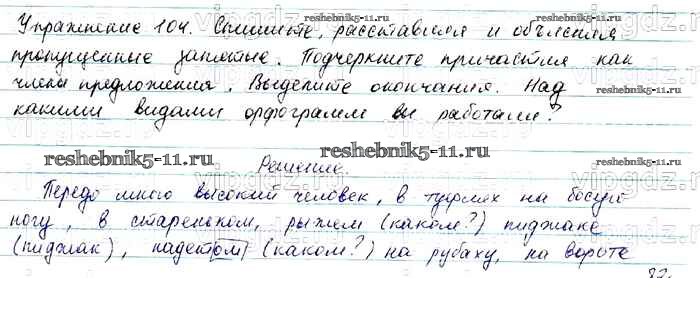 reshebnik5-11.ru
Упражнение 104. Спишите, расставляя и объясняя
пропущенные запятые. Подчеркните причастия как
члены предложения. Выделите окончания. Над
какими видами орфограмм вы работали?
reshebnik5-11.ru reshebnik5-11.ru reshebnik5-11.ru
Решение.
Передо мною высокий человек, в туфлях на босую
ногу, в стареньком, рыжем (каком?) пиджаке
(пиджак), надетом (каком?) на рубаху, на вороте